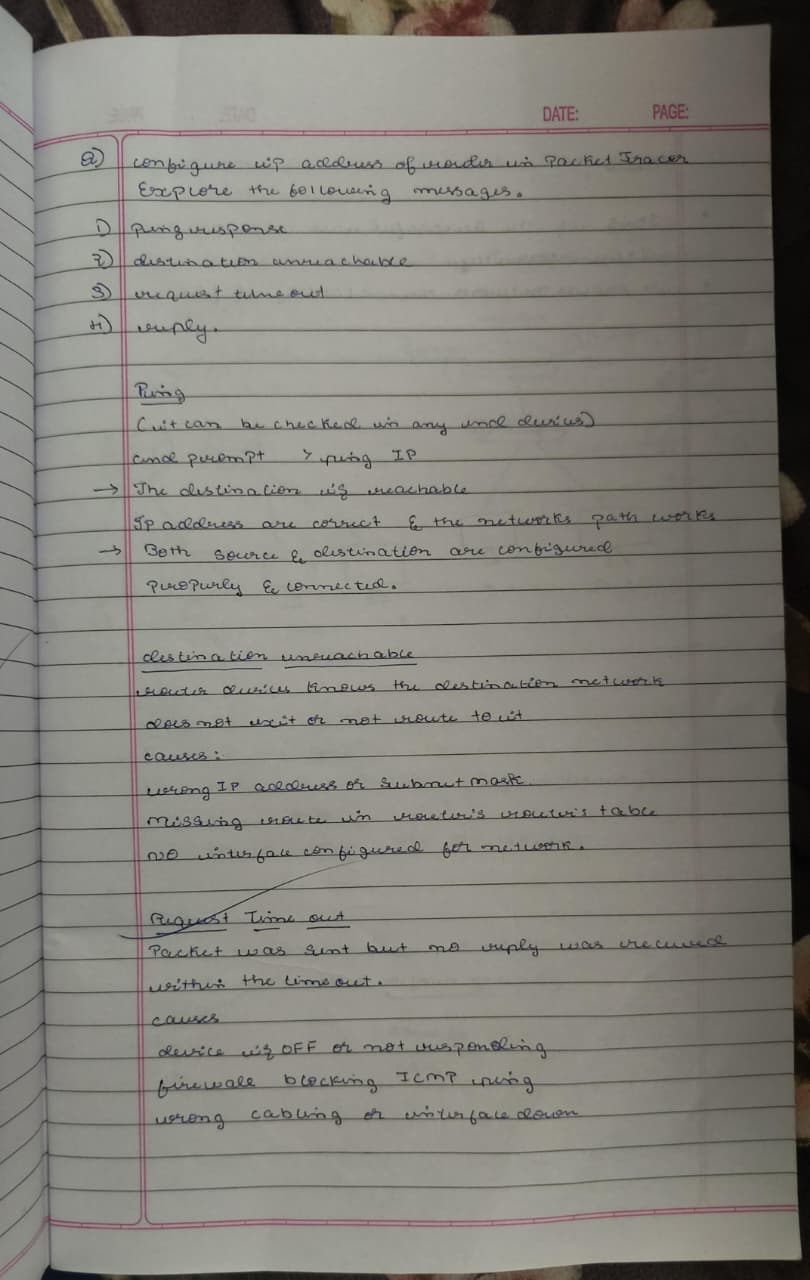 DATE: PAGE:
Q) configure ip address of router in Packet Tracer
Explore the following messages.
1) ping response
2) destination unreachable
3) request time out
4) reply.
Ping
(it can be checked in any end devices)
cmd prompt > ping IP
→ The destination is reachable
Ip address are correct & the networks path works
→ Both source & destination are configured
properly & connected.
destination unreachable
router devices knows the destination network
does not exit or not route to it
causes:
wrong IP address or subnet mask
missing route in router's router's table
no interface configured for network.
Request Time out
Packet was sent but no reply was received
within the time out.
causes
device is OFF or not responding
firewall blocking ICMP ping
wrong cabling or interface down